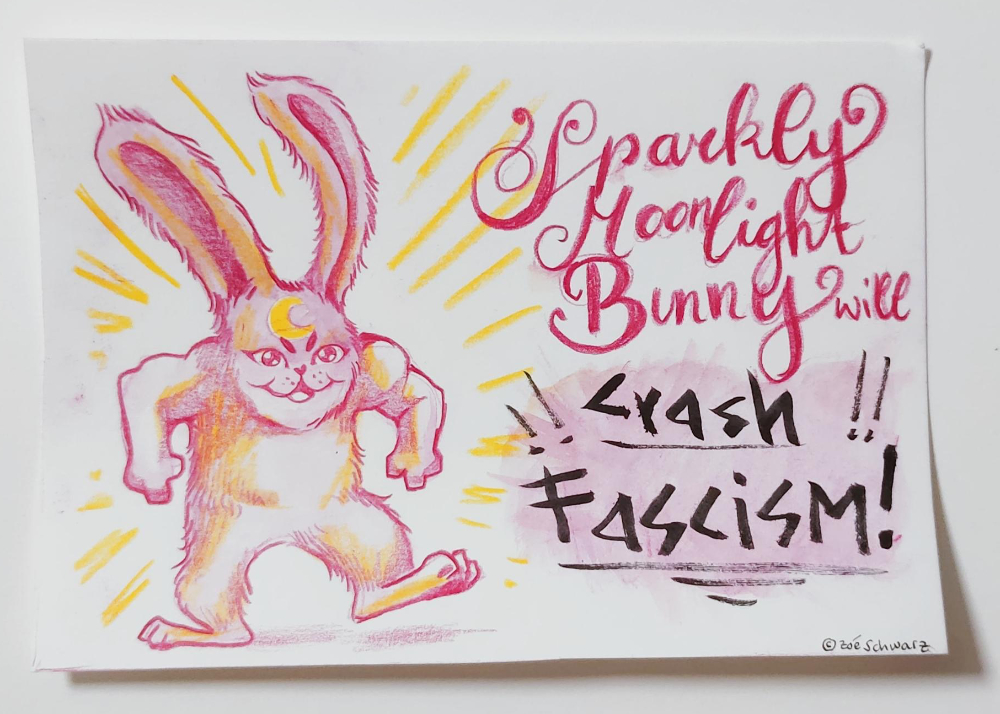 Sparkly
Moonlight
Bunny will
!! Crash !!
Fascism!
© Zoé Schwarz